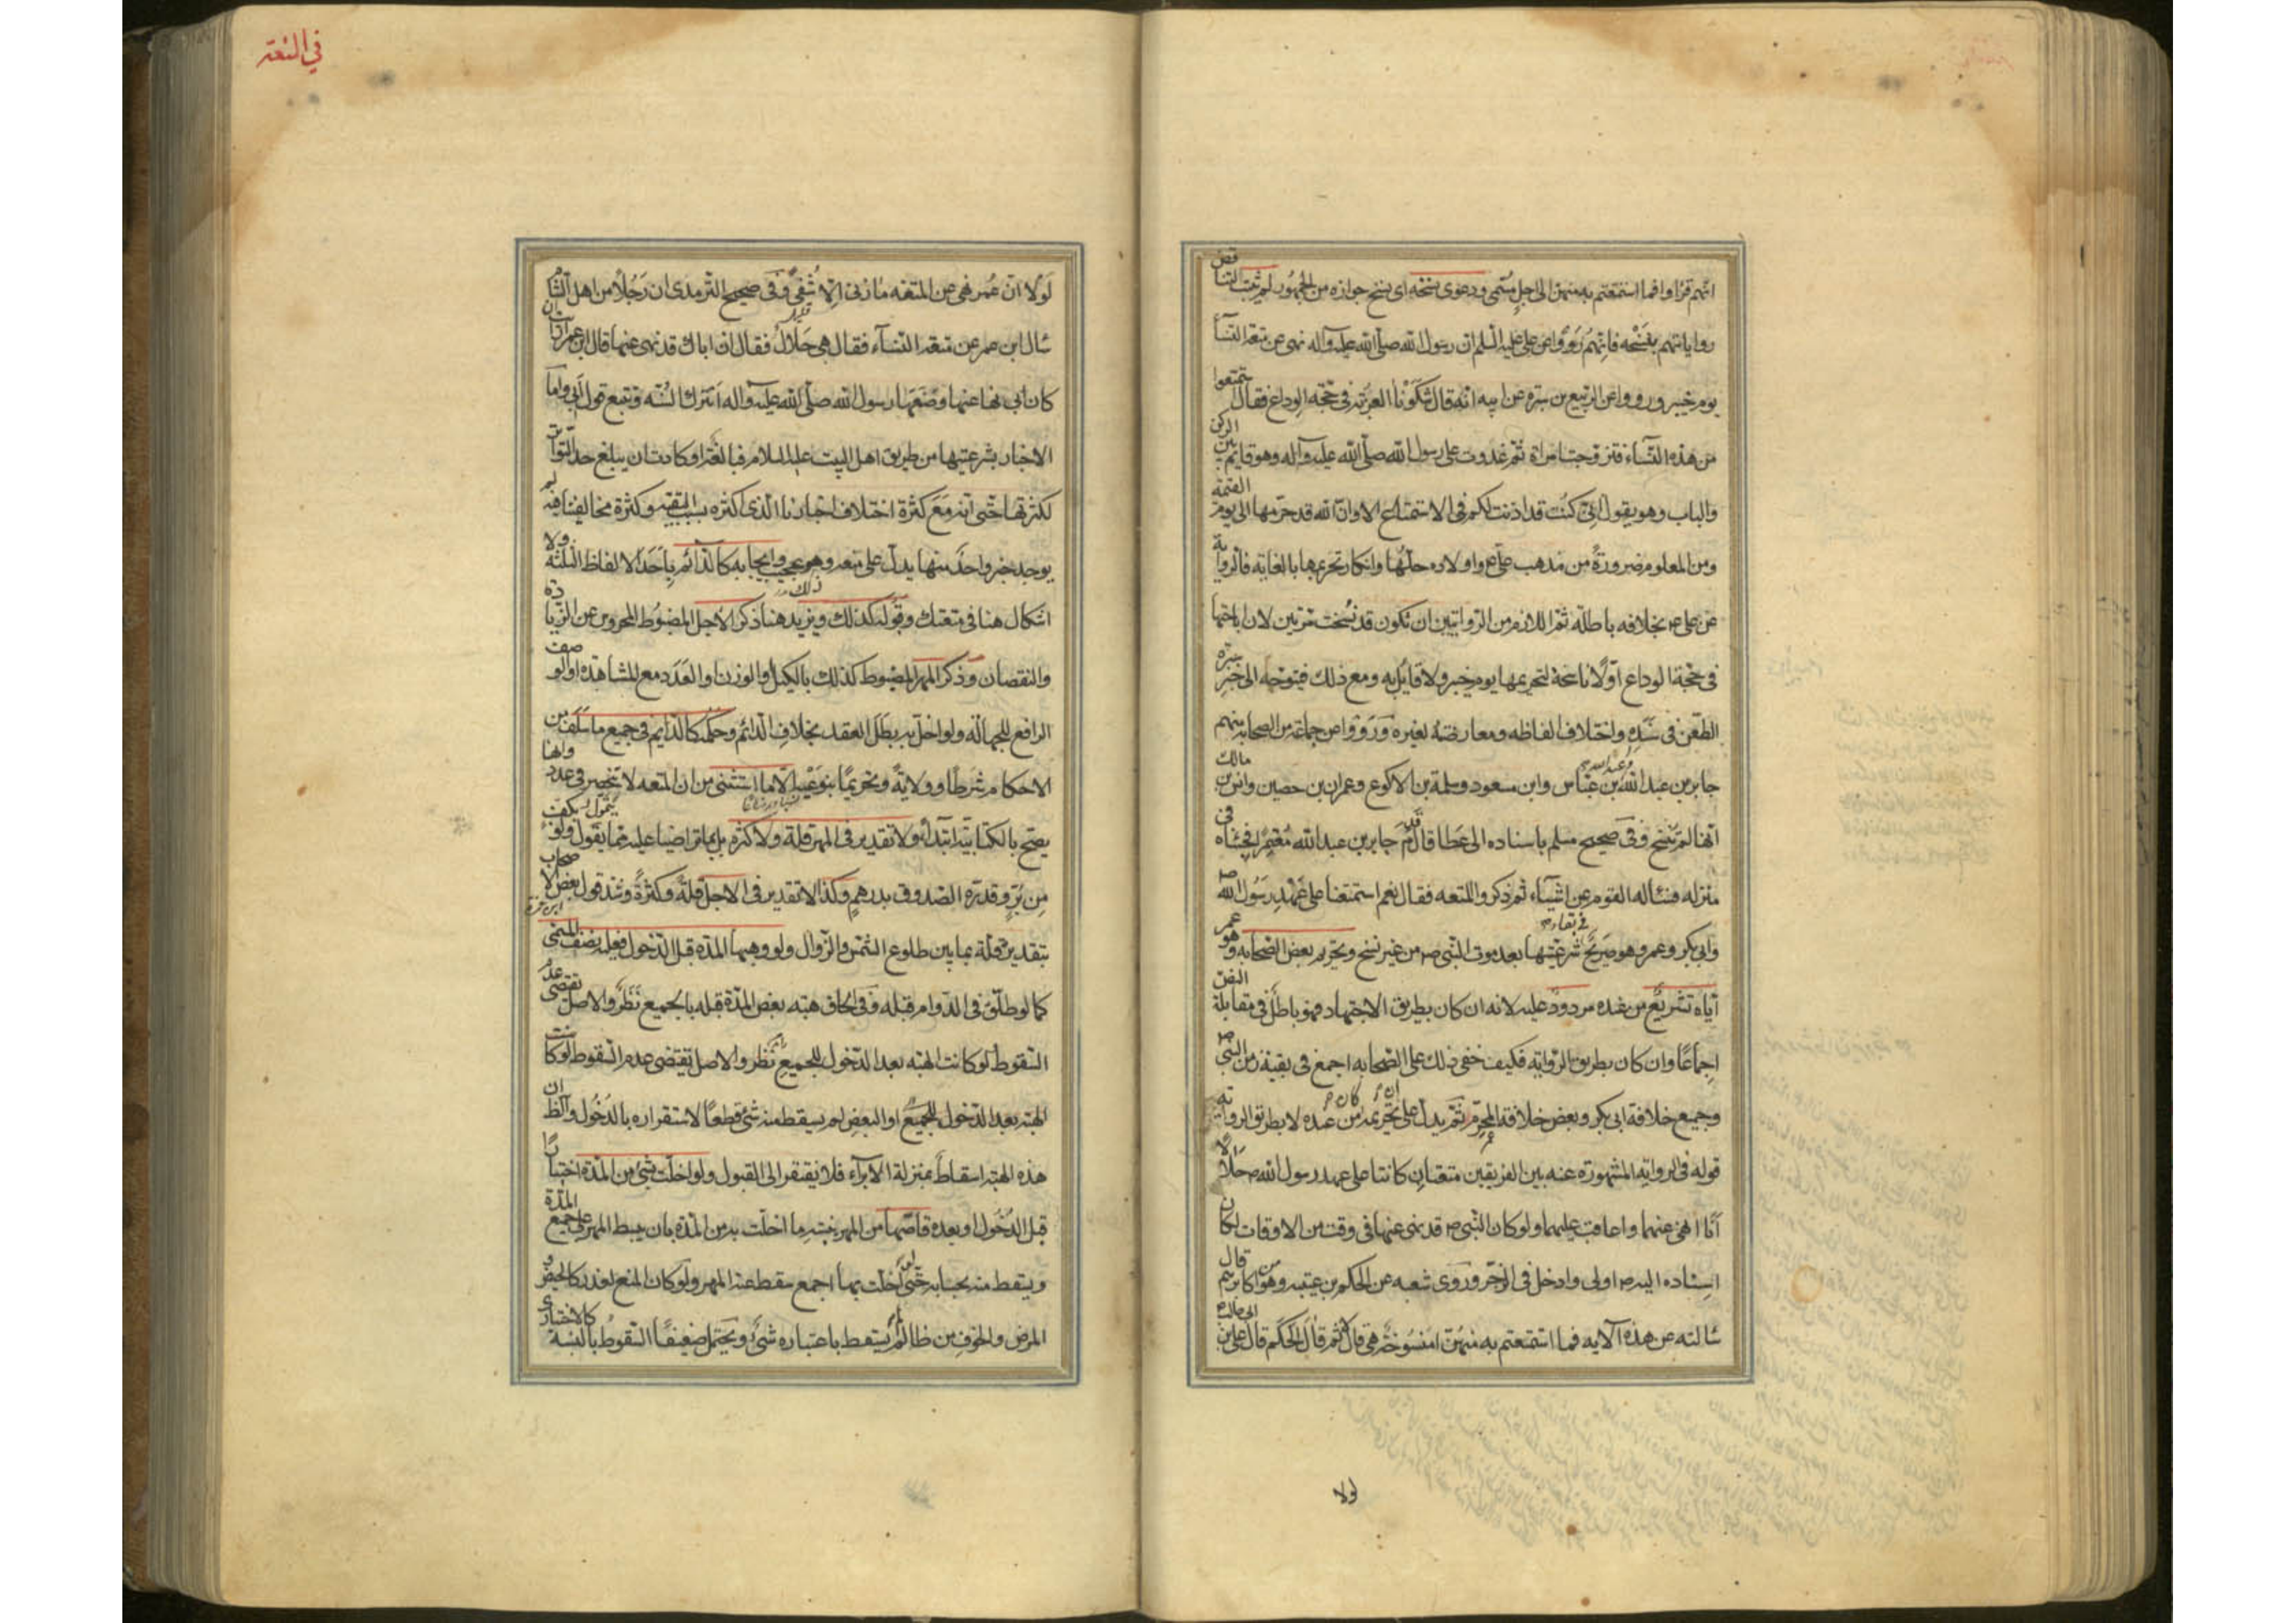 انهم قرأوا فما استمتعتم به منهن الى اجل مسمى ودعوى نسخه اى نسخ جوازه من الجمهور لم تثبت لتناقض
رواياتهم بنسخه فانهم رووا عن على عليه السلم ان رسول الله صلى الله عليه وآله نهى عن متعة النسآء
يوم خيبر ورووا عن الربيع بن سبرة عن ابيه انه قال شكونا العزبة فى حجة الوداع فقال استمتعوا
من هذه النسآء فتزوجت امراة ثم غدوت على رسول الله صلى الله عليه وآله وهو قايم بين الركن
والباب وهو يقول انى كنت قد اذنت لكم فى الاستمتاع الا وان الله قد حرمها الى يوم القيمة
ومن المعلوم ضرورة من مذهب على واولاده حلها وانكار تحريمها بالغاية فالرواية
عن على بخلافه باطلة ثم اللازم من الروايتين ان تكون قد نسخت مرتين لان اباحتها
فى حجة الوداع اولا ناسخة لتحريمها يوم خيبر ولا قايل به ومع ذلك فيتوجه الى خبر سبرة
الطعن فى سنده واختلاف الفاظه ومعارضته لغيره ورووا عن جماعة من الصحابة منهم
جابر بن عبد الله وعبد الله بن عباس وابن مسعود وسلمة بن الاكوع وعمران بن حصين وانس بن مالك
انها لم تنسخ وفى صحيح مسلم باسناده الى عطا قال قدم جابر بن عبد الله معتمرا فجئناه فى
منزله فسئاله القوم عن اشيآء ثم ذكروا المتعه فقال نعم استمتعنا على عهد رسول الله ص
وابى بكر وعمر وهو صريح فى بقاء شرعيتها بعد موت النبى ص من غير نسخ وتحريم بعض الصحابه وهو عمر
اياه تشريع من عنده مردود عليه لانه ان كان بطريق الاجتهاد فهو باطل فى مقابلة النص
اجماعا وان كان بطريق الرواية فكيف خفى ذلك على الصحابه اجمع فى بقية زمن النبى ص
وجميع خلافة ابى بكر وبعض خلافة المحرم ثم يدل على ان تحريمه كان من عنده لا بطريق الرواية
قوله فى الرواية المشهورة عنه بين الفريقين متعتان كانتا على عهد رسول الله ص حلالا
انا انهى عنهما واعاقب عليهما ولو كان النبى ص قد نهى عنها فى وقت من الاوقات لكان
اسناده اليه ص اولى وادخل فى الزجر وروى شعبه عن الحكم بن عتيبه وهو من اكابرهم قال
سالته عن هذه الآية فما استمتعتم به منهن امنسوخة هى قال لا ثم قال الحكم قال على بن ابى طالب
لولا
فى المتعة
لولا ان عمر نهى عن المتعه ما زنى الا شقى وفى صحيح الترمذى ان رجلا من اهل الشام
سال ابن عمر عن متعة النسآء فقال هى حلال فقال ان اباك قد نهى عنها قال ابن عمر ارايت ان
كان ابى نهى عنها وصنعها رسول الله صلى الله عليه وآله اتترك السنه وتتبع قول ابى واما
الاخبار بشرعيتها من طريق اهل البيت عليهم السلام فبالغة او كادت ان يبلغ حد التواتر
لكثرتها حتى انه مع كثرة اختلاف اخبارنا الذى اكثره بسبب التقية وكثرة مخالفينا فيه لم
يوجد خبر واحد منها يدل على منعه وهو عجيب وايجابه كالدائم باحد الالفاظ الثلثة ولا
اشكال هنا فى متعتك وقبوله كذلك ويزيد هنا ذكر الاجل المضبوط المحروس عن الزيادة
والنقصان وذكر المهر المضبوط كذلك بالكيل او الوزن او العدد مع المشاهدة او الوصف
الرافع للجهالة ولو اخل به بطل العقد بخلاف الدائم وحكمه كالدايم فى جميع ما سلف من
الاحكام شرطا وولاية وتحريما بنوعيه الا ما استثنى من ان المتعه لا تنحصر فى عدد وانها
يصح بالكتابية ابتداء ولا تقدير فى المهر قلة ولا كثرة بل ما تراضيا عليه مما يتمول ولو بكف
من بر وقدره الصدوق بدرهم وكذا لا تقدير فى الاجل قلة وكثرة وشذ قول بعض الاصحاب
بتقدير قلته بما بين طلوع الشمس والزوال ولو وهبها المدة قبل الدخول فعليه نصف المسمى
كما لو طلق فى الدوام قبله وفى الحاق هبة بعض المدة قبله بالجميع نظر والاصل يقتضى عدم
السقوط لو كانت الهبه بعد الدخول للجميع نظر والاصل تقتضى عدم السقوط لو كانت
الهبة بعد الدخول للجميع او البعض لم يسقط منه شئ قطعا لاستقراره بالدخول والظ ان
هذه الهبة اسقاط بمنزلة الابرآء فلا يفتقر الى القبول ولو اخلت بشئ من المدة اختيارا
قبل الدخول او بعده قاصها من المهر بنسبة ما اخلت به من المدة بان يبسط المهر على جميع المدة
ويسقط منه بحسابه حتى لو اخلت بها اجمع سقط عنه المهر ولو كان المنع لعذر كالحيض و
المرض والخوف من ظالم لم يسقط باعتباره شئ ويحتمل ضعيفا السقوط بالنسبة كالاختيارى